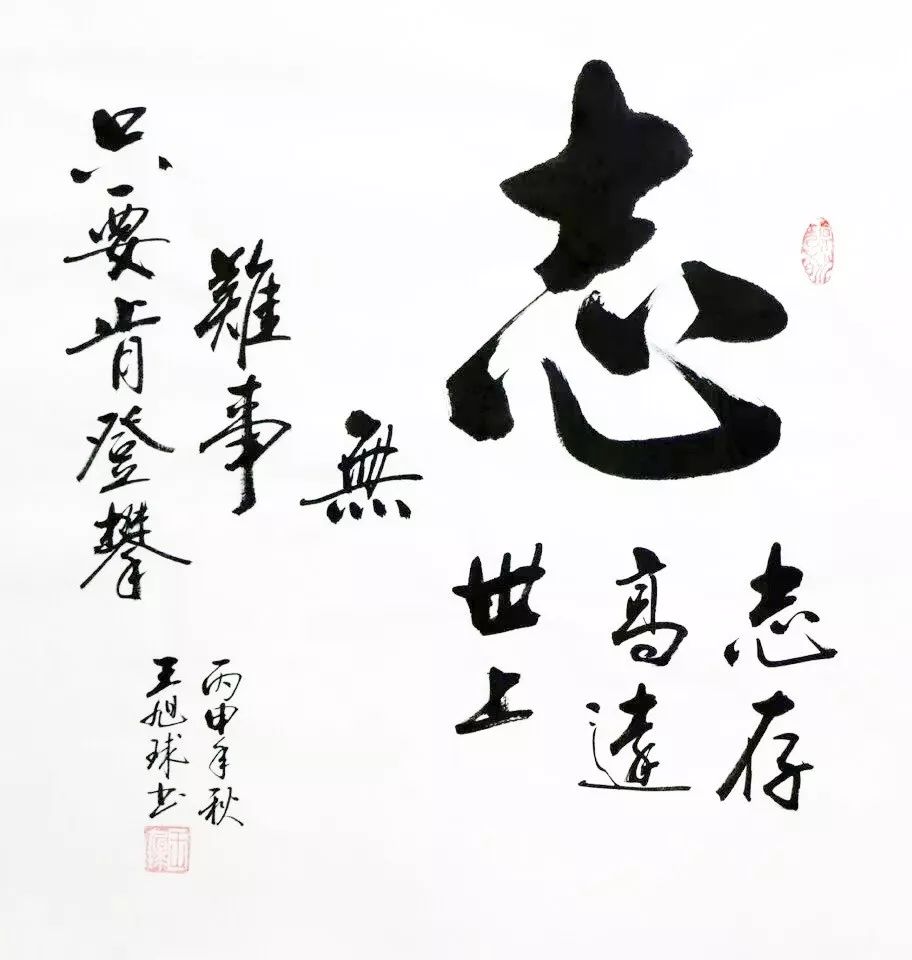 志
志存
高遠
世上
無
難事
只要肯登攀
丙申年秋
王旭球书